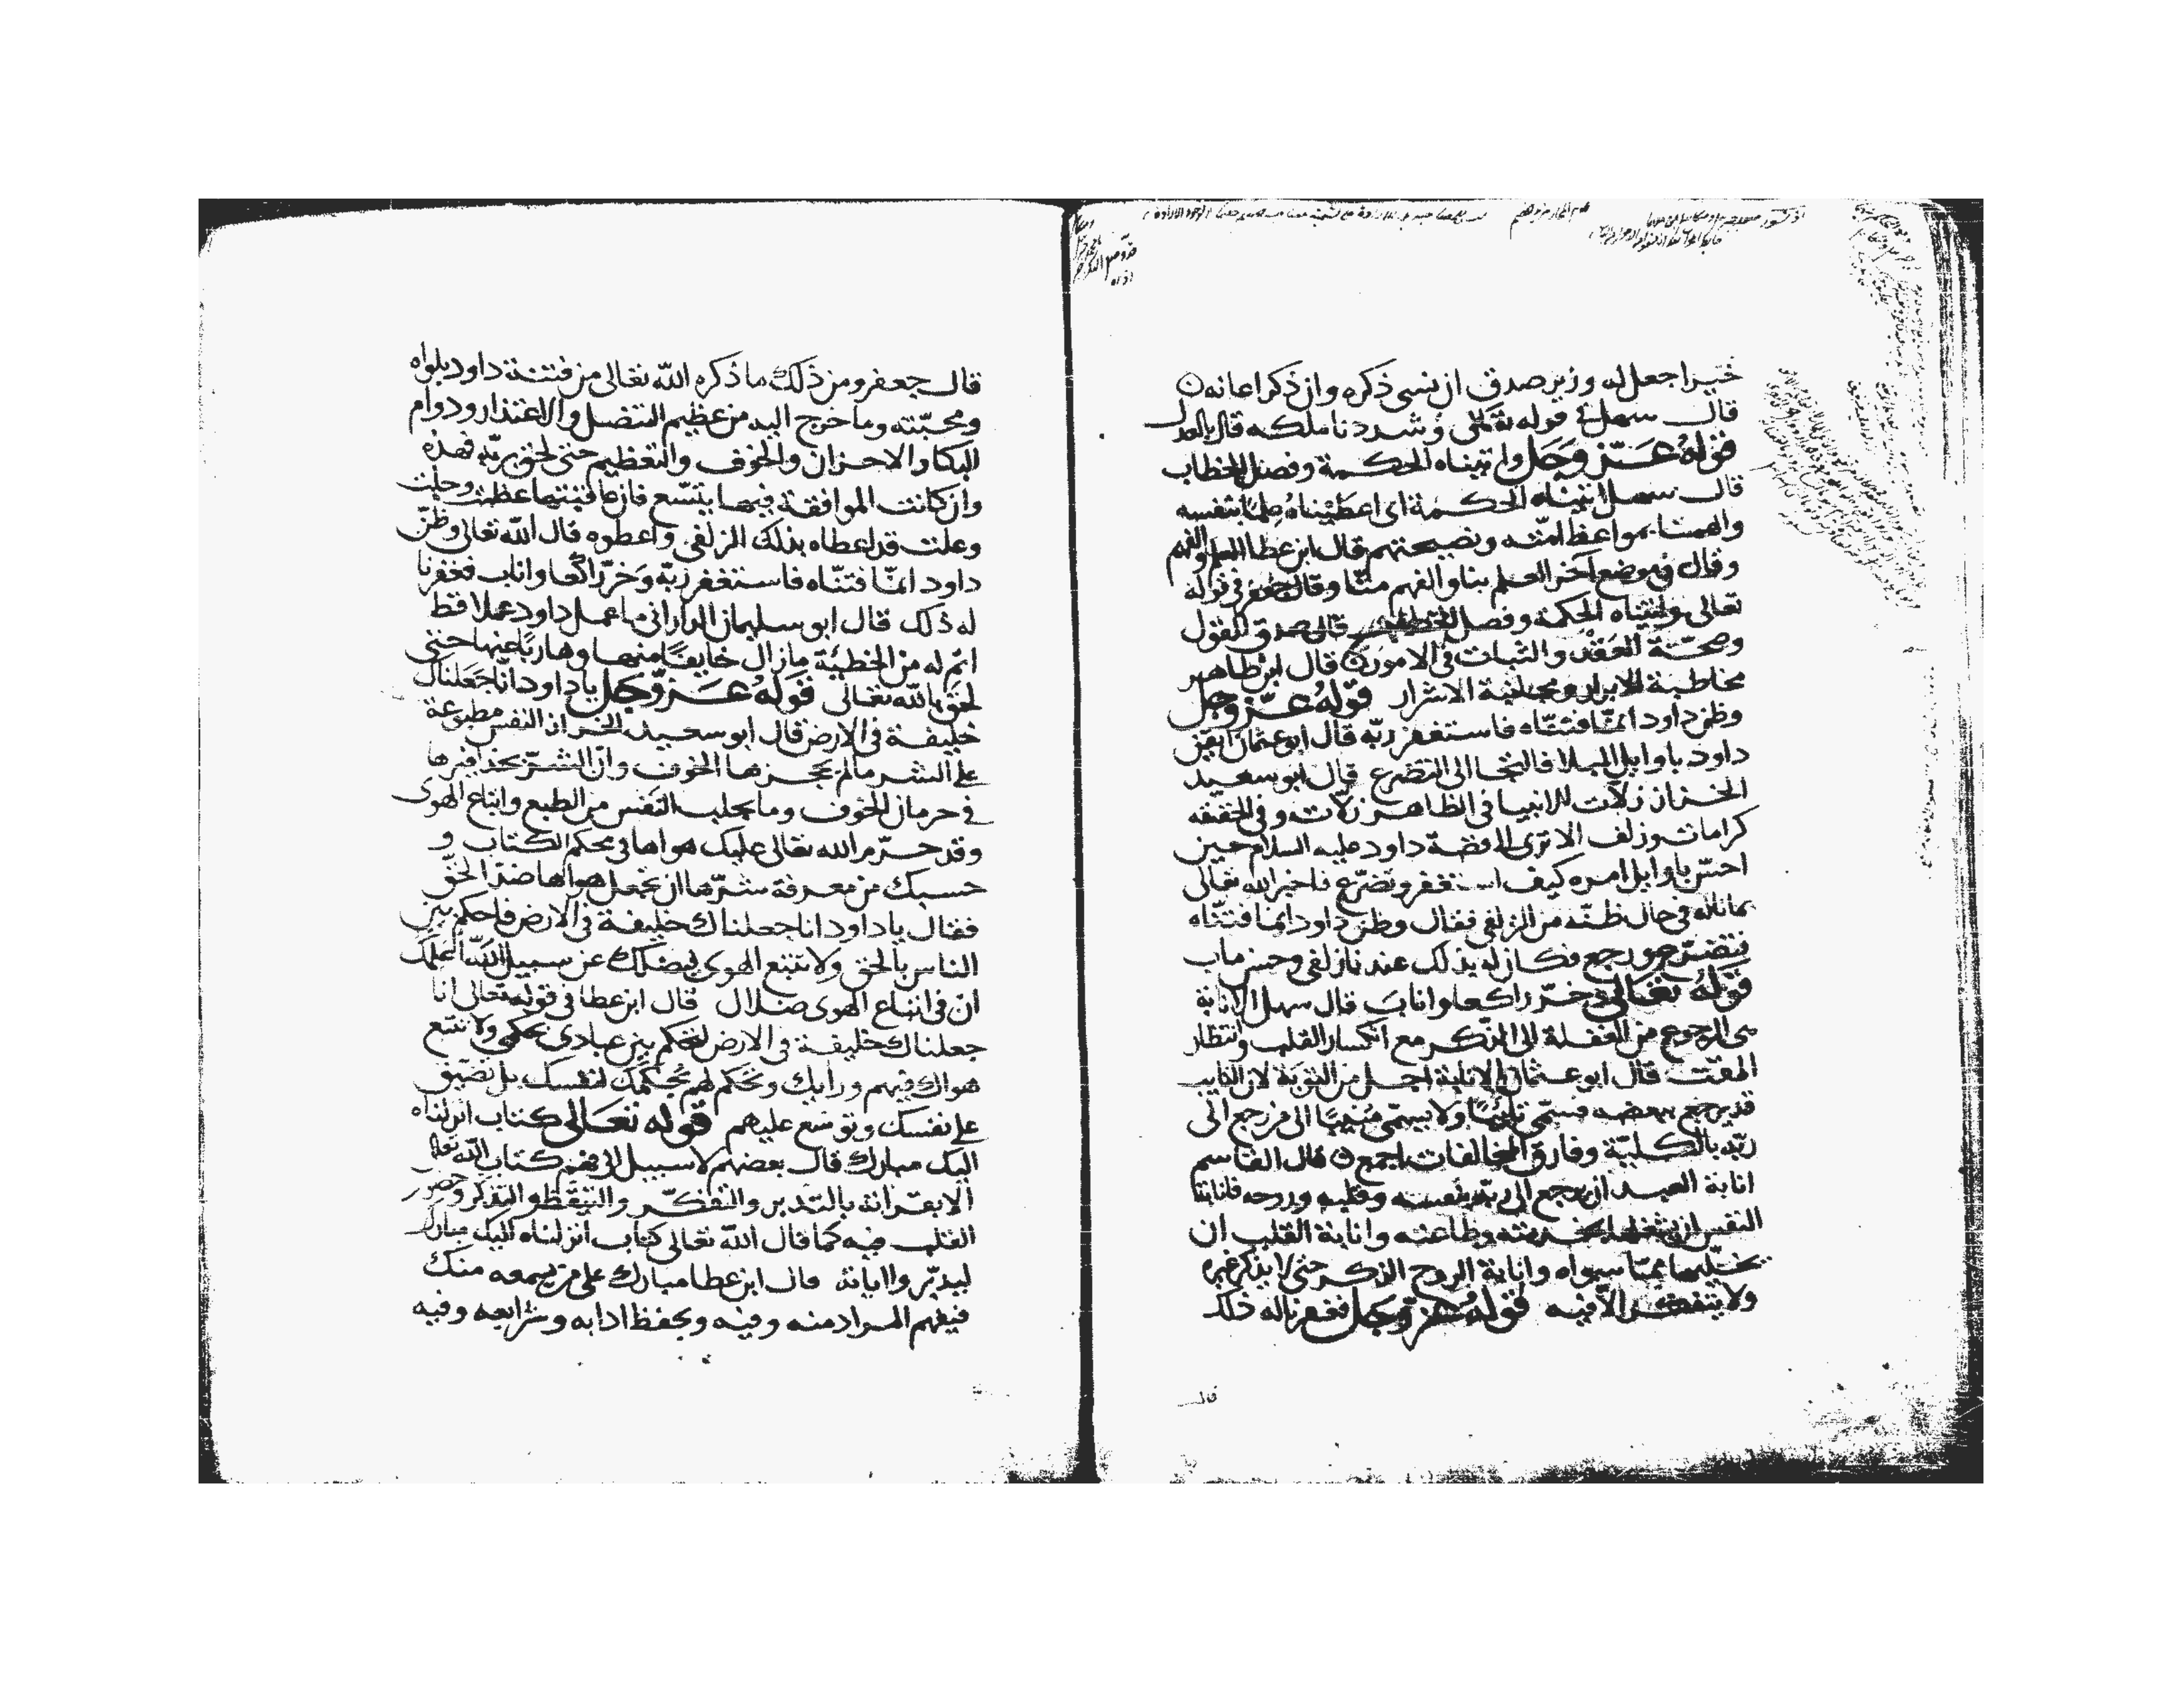 خيرا جعل له وزير صدق ان نسى ذكره وان ذكر اعانه
قال سهل في قوله تعالى وشددنا ملكه قال بالعدل
قوله عز وجل واتيناه الحكمة وفصل الخطاب
قال سهل اتيناه الحكمة اى اعطيناه علما بنفسه
والهمنا بمواعظ امته ونصيحتهم قال ابن عطا العلم والفهم
وقال في موضع آخر العلم بنا والفهم منا وقال جعفر في قوله
تعالى واتيناه الحكمة وفصل الخطاب قال صدق القول
وصحة العقد والثبات في الامور قال ابن طاهر
مخاطبة الابرار ومجانبة الاشرار قوله عز وجل
وظن داود انما فتناه فاستغفر ربه قال ابو عثمان ايقن
داود باوايل البلا فالتجا الى التضرع قال ابو سعيد
الخراز زلات الانبيا في الظاهر زلات وفي الحقيقه
كرامات وزلف الا ترى الى قصة داود عليه السلام حين
احس باوايل امره كيف استغفر وتضرع فاخبر الله تعالى
بما ناله في حال ظنه من الزلفى فقال وظن داود انما فتناه
فتضرع ورجع فكان له بذلك عندنا زلفى وحسن ماب
قوله تعالى وخر راكعا واناب قال سهل الانابة
هى الرجوع من الغفلة الى الذكر مع انكسار القلب وانتظار
المقت قال ابو عثمان الانابة اجل من التوبة لان التايب
قد يرجع ببعضه فيسمى تائبا ولا يسمى منيبا الى من رجع الى
ربه بالكلية وفارق المخالفات اجمع قال القاسم
انابة العبد ان يرجع الى ربه بنفسه وقلبه وروحه فانابة
النفس ان يشغلها بخدمته وطاعته وانابة القلب ان
يخليها مما سواه وانابة الروح الذكر حتى لا يذكر غيره
ولا يتفكر الا فيه قوله عز وجل فغفرنا له ذلك
قال
قال جعفر ومن ذلك ما ذكره الله تعالى من فتنة داود بلواه
ومحبته وما خرج اليه من عظيم التنصل والاعتذار ودوام
البكا والاحزان والخوف والتعظيم حتى لحق بربه فهذه
وان كانت الموافقة فيها يتسع فان عاقبتها عظمت وجلت
وعلت قد اعطاه بذلك الزلفى واعطوه قال الله تعالى وظن
داود انما فتناه فاستغفر ربه وخر راكعا واناب فغفرنا
له ذلك قال ابو سليمان الدارانى ما عمل داود عملا قط
اتم له من الخطيئة ما زال خايفا منها وهاربا عنها حتى
لحق بالله تعالى قوله عز وجل ياداود انا جعلناك
خليفة في الارض قال ابو سعيد الخراز ان النفس مطبوعة
على الشر ما لم يحجزها الخوف وان الشر بحذافيرها
في حرمان الخوف وما يجلب النفس من الطبع واتباع الهوى
وقد حرم الله تعالى عليك هواها في محكم الكتاب و
حسبك من معرفة شرها ان تجعل هواها ضد الحق
فقال ياداود انا جعلناك خليفة في الارض فاحكم بين
الناس بالحق ولا تتبع الهوى فيضلك عن سبيل الله اعلمك
ان في اتباع الهوى ضلال قال ابن عطا في قوله تعالى انا
جعلناك خليفة في الارض لتحكم بين عبادى بحكمى ولا تتبع
هواك فيهم ورايك وتحكم لهم بحكمك لنفسك بل تضيق
على نفسك وتوسع عليهم قوله تعالى كتاب انزلناه
اليك مبارك قال بعضهم لا سبيل الى فهم كتاب الله تعالى
الا بقراته بالتدبر والتفكر والتيقظ والتذكر وحضور
القلب فيه كما قال الله تعالى كتاب انزلناه اليك مبارك
ليدبروا اياته قال ابن عطا مبارك على من يسمعه منك
فيفهم المراد منه وفيه ويحفظ ادابه وشرايعه وفيه